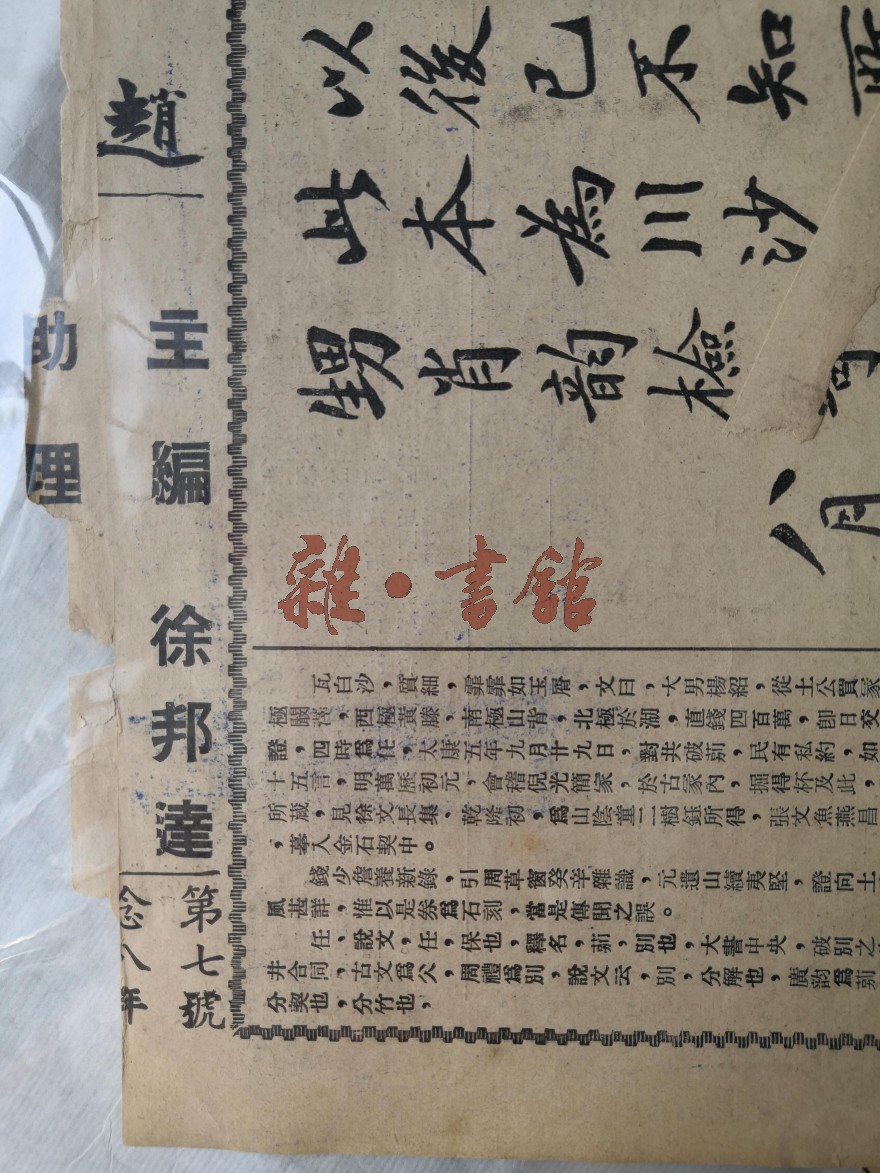 趙
主編 徐邦達
助理
第七號
以後已不知所
此本為川沙
甥肖韵檢
八月
瓦白沙，質細，霏霏如玉屑，文曰，大男楊紹，從土公買冢
極闞澤，西極黃滕，南極山背，北極於湖，直錢四百萬，卽日交
證，四時爲任，太康五年九月廿九日，對共破莂，民有私約，如
十五言，明萬歷初元，會稽倪光簡冢，於古冢內，掘得杯及此，
所藏，見徐文長集，乾隆初，爲山陰童二樹鈺所得，張文魚燕昌
，摹入金石契中。
錢少詹養新錄，引周草窗癸辛雜識，元遺山續夷堅，證向土
風甚詳，惟以是劵爲石刻，當是傳聞之誤。
任、說文，任，保也，釋名，莂，別也，大書中央，破別之
井合同，古文爲，周禮爲別，說文云，別，分解也，廣韵爲莂
分契也，分竹也，
雜·書館